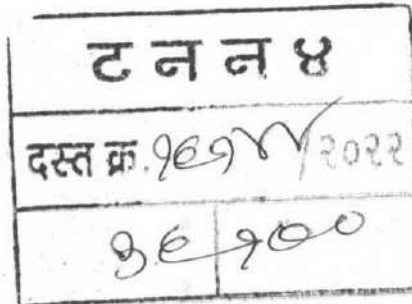 ट न न ४
दस्त क्र. १६९४४/२०२२
३६ १००